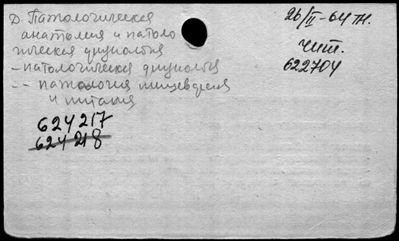 Д. Патологическая
анатомия и патоло
гическая физиология
- патологическая физиология
-- патология пищеварения
и питания
624217
624218
26/II-64 тн.
Чит.
622704